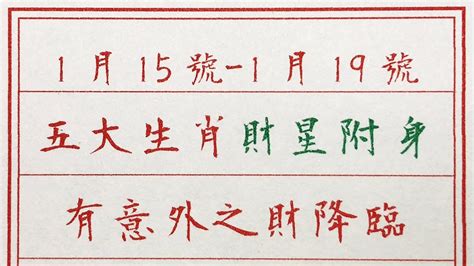 1月15號-1月19號
五大生肖財星附身
有意外之財降臨